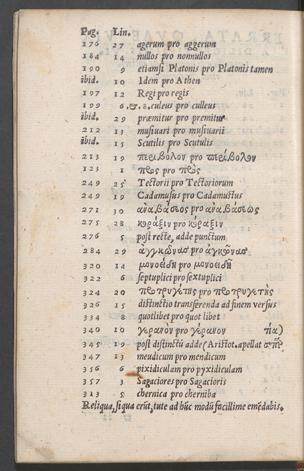 Pag. Lin.
276 27 agerum pro aggerum
184 14 nullos pro nonnullos
190 9 etiamsi Platonis pro Platonis tamen
ibid. 10 Idem pro Athen
197 12 Regi pro regis
199 6.&.8. culeus pro culleus
ibid. 29 præmitur pro premitur
212 13 musiuari pro musiuarii
ibid. 15 Scutilis pro Scutulis
213 19 περιβολον pro περίβολον
123 1 πῶς pro πὼς
249 25 Tectorii pro Tectoriorum
249 19 Cadamusus pro Cadamustus
271 30 αναβάσιος pro αναβάσεως
275 28 pro
276 5 post recte, adde punctum
284 29 pro
320 14 μονοειδη pro μονοειδῆ
322 6 septuplici pro sextuplici
324 20 pro
326 15 distinctio transferenda ad finem versus
334 8 quotlibet pro quot libet
340 10 γερανον pro γέρανον τία)
345 19 post distinctū adde (Aristot. apellat
347 13 meudicum pro mendicum
356 6 pixidiculam pro pyxidiculam
357 3 Sagaciores pro Sagacioris
313 5 chernica pro cherniba
Reliqua, siqua erūt, tute ad hūc modū facillime emēdabis.